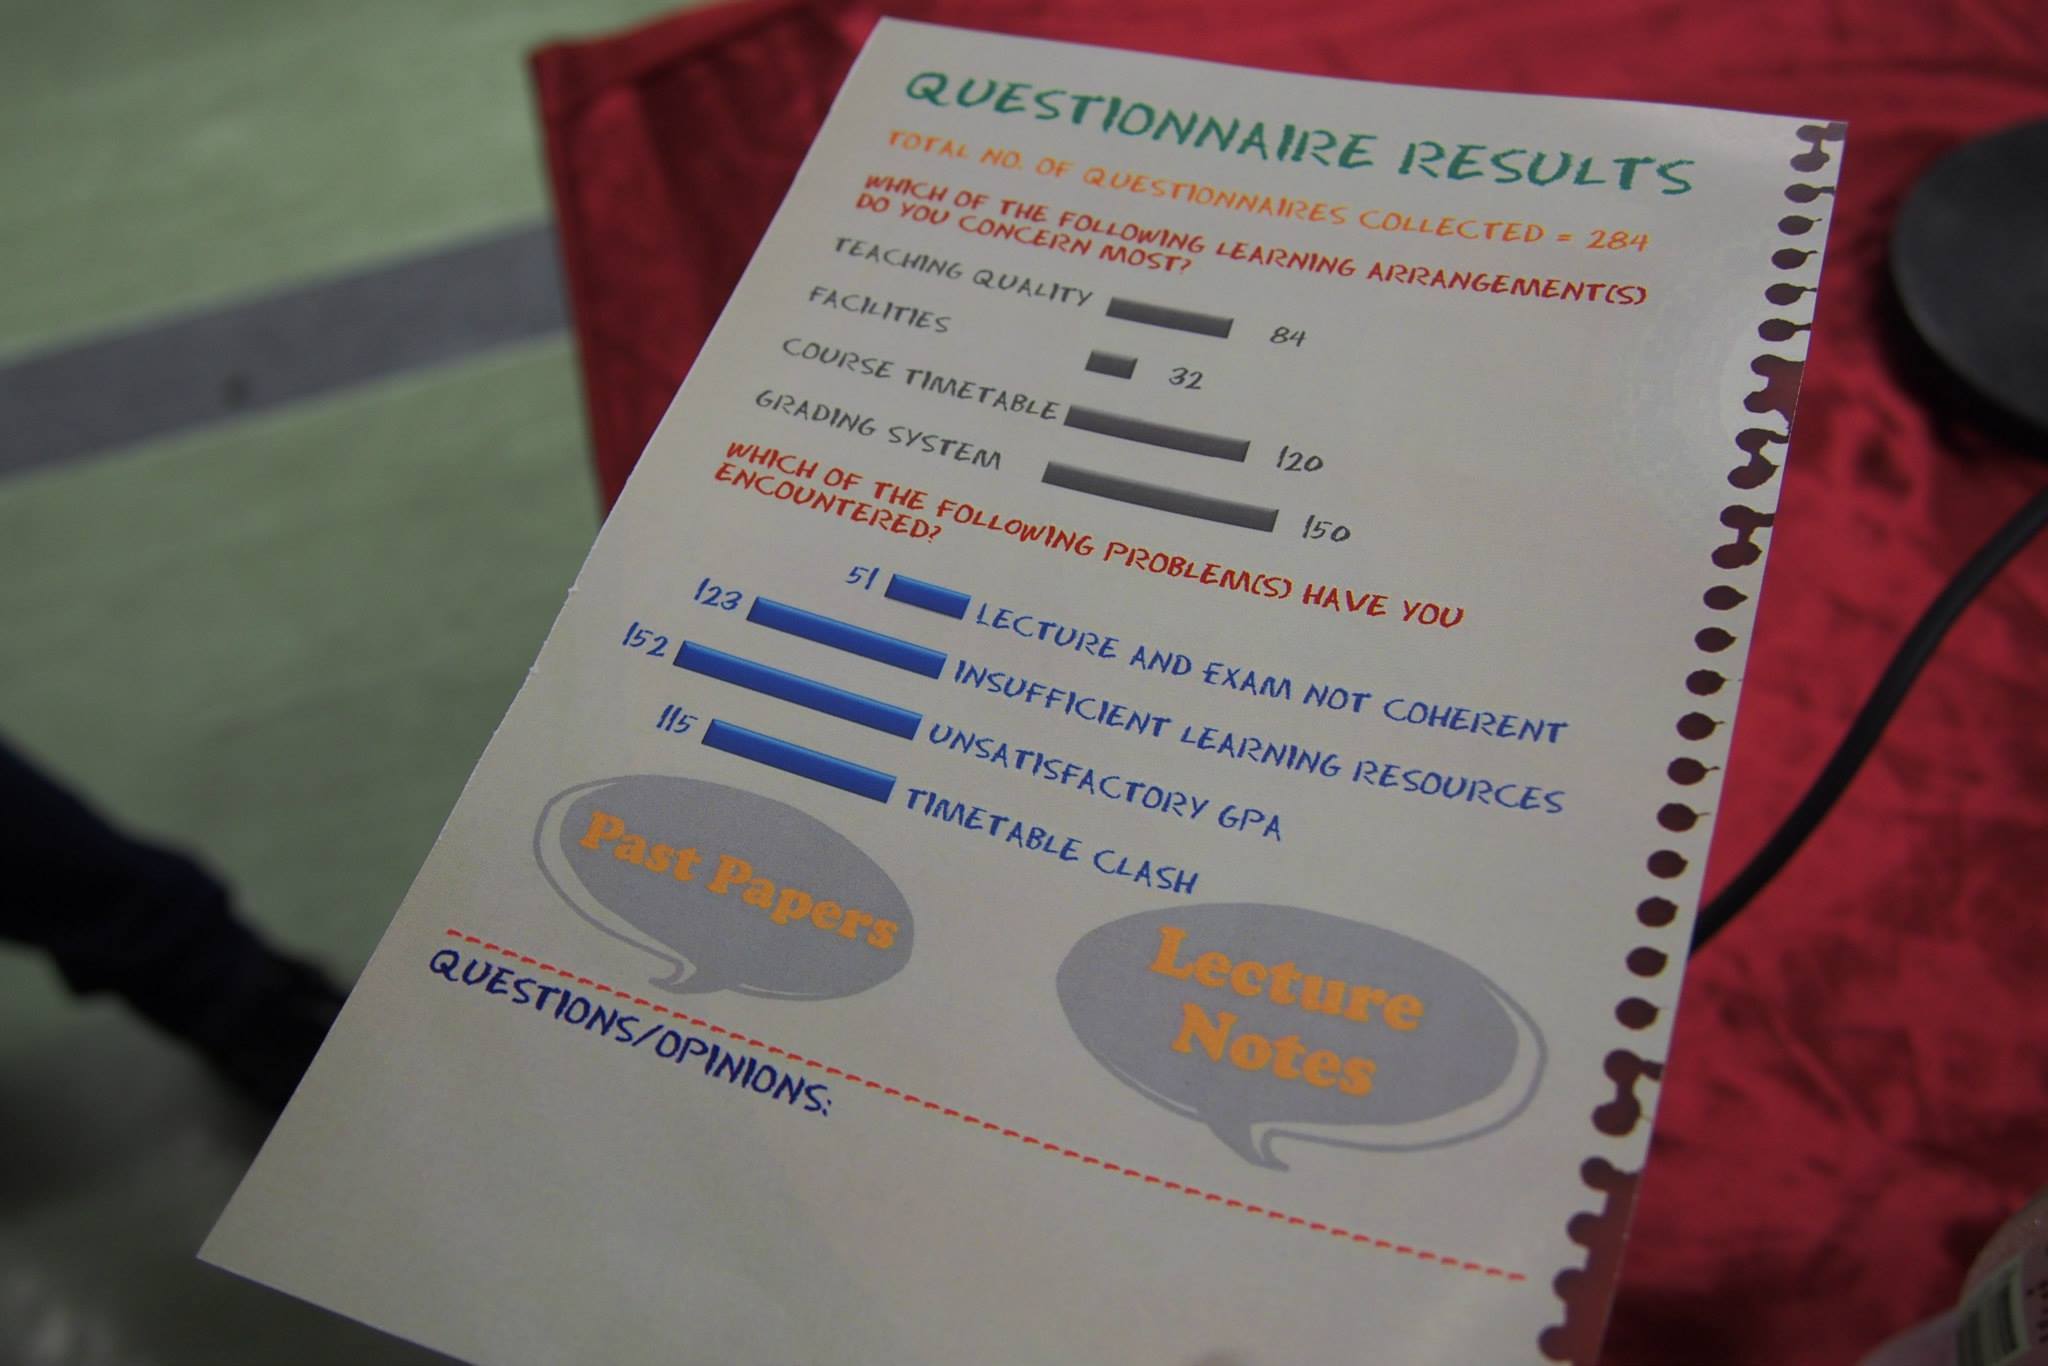 QUESTIONNAIRE RESULTS
TOTAL NO. OF QUESTIONNAIRES COLLECTED = 284
WHICH OF THE FOLLOWING LEARNING ARRANGEMENT(S)
DO YOU CONCERN MOST?
TEACHING QUALITY 84
FACILITIES 32
COURSE TIMETABLE 120
GRADING SYSTEM 150
WHICH OF THE FOLLOWING PROBLEM(S) HAVE YOU
ENCOUNTERED?
51 LECTURE AND EXAM NOT COHERENT
123 INSUFFICIENT LEARNING RESOURCES
152 UNSATISFACTORY GPA
115 TIMETABLE CLASH
Past Papers
Lecture
Notes
QUESTIONS/OPINIONS: